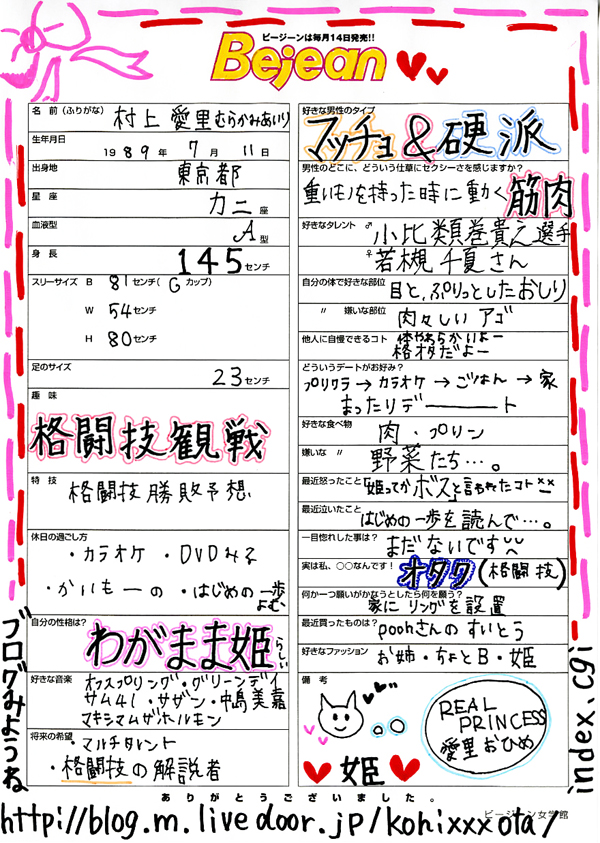 ビージーンは毎月14日発売!!
Bejean
名 前(ふりがな) 村上 愛里 むらかみあいり
生年月日 1989年 7月 11日
出身地 東京都
星 座 カニ座
血液型 A型
身 長 145センチ
スリーサイズ B 81センチ(Gカップ)
W 54センチ
H 80センチ
足のサイズ 23センチ
趣 味
格闘技観戦
特 技
格闘技勝敗予想
休日の過ごし方
・カラオケ ・DVDみる
・かいもーの ・はじめの一歩よむ
自分の性格は?
わがまま姫らしい
好きな音楽
オフスプリング・グリーンデイ
サム41・サザン・中島美嘉
マキシマムザホルモン
将来の希望
・マルチタレント
・格闘技の解説者
好きな男性のタイプ
マッチョ&硬派
男性のどこに、どういう仕草にセクシーさを感じますか?
重いモノを持った時に動く筋肉
好きなタレント ♂ 小比類巻貴之選手
♀ 若槻千夏さん
自分の体で好きな部位 目と、ぷりっとしたおしり
〃 嫌いな部位 肉々しいアゴ
他人に自慢できるコト 体やわらかいよー
格オタだよー
どういうデートがお好み?
プリクラ→カラオケ→ごはん→家
まったりデート
好きな食べ物 肉・プリン
嫌いな 〃 野菜たち…。
最近怒ったこと 「姫ってかボス」と言われたコト××
最近泣いたこと はじめの一歩を読んで…。
一目惚れした事は? まだないです
実は私、○○なんです! オタク(格闘技)
何か一つ願いがかなうとしたら何を願う?
家にリングを設置
最近買ったものは? poohさんのすいとう
好きなファッション お姉・ちょとB・姫
備 考
REAL PRINCESS
愛里おひめ
♥姫♥
ありがとうございました。
ビージーン女学館
ブログみようね
http://blog.m.livedoor.jp/kohixxxota/
index.cgi